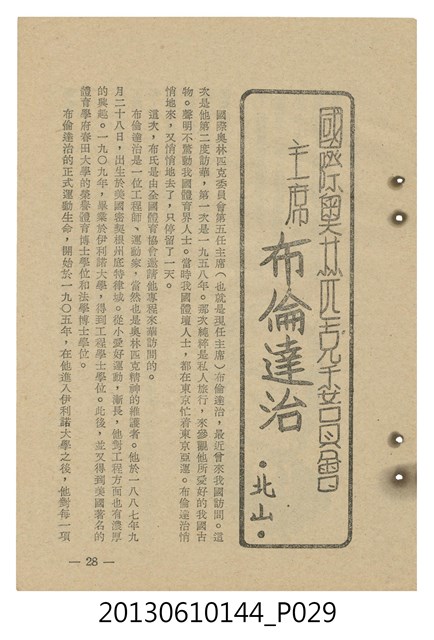 國際奧林匹克委員會
主席 布倫達治
·北山·
國際奧林匹克委員會第五任主席(也就是現任主席)布倫達治,最近曾來我國訪問。這
次是他第二度訪華,第一次是一九五八年。那次純粹是私人旅行,來參觀他所愛好的我國古
物。聲明不驚動我國體育界人士。當時我國體壇人士,都在東京忙着東京亞運。布倫達治悄
悄地來,又悄悄地去了,只停留了一天。
這次,布氏是由全國體育協會邀請他專程來華訪問的。
布倫達治是一位工程師、運動家,當然也是奧林匹克精神的維護者。他於一八八七年九
月二十八日,出生於美國密契根州底特律城。從小愛好運動,漸長,他對工程方面也有濃厚
的興趣。一九〇九年,畢業於伊利諾大學,得到工程學士學位。此後,並又得到美國著名的
體育學府春田大學的榮譽體育博士學位和法學博士學位。
布倫達治的正式運動生命,開始於一九〇五年,在他進入伊利諾大學之後,他對每一項
— 28 —
20130610144_P029